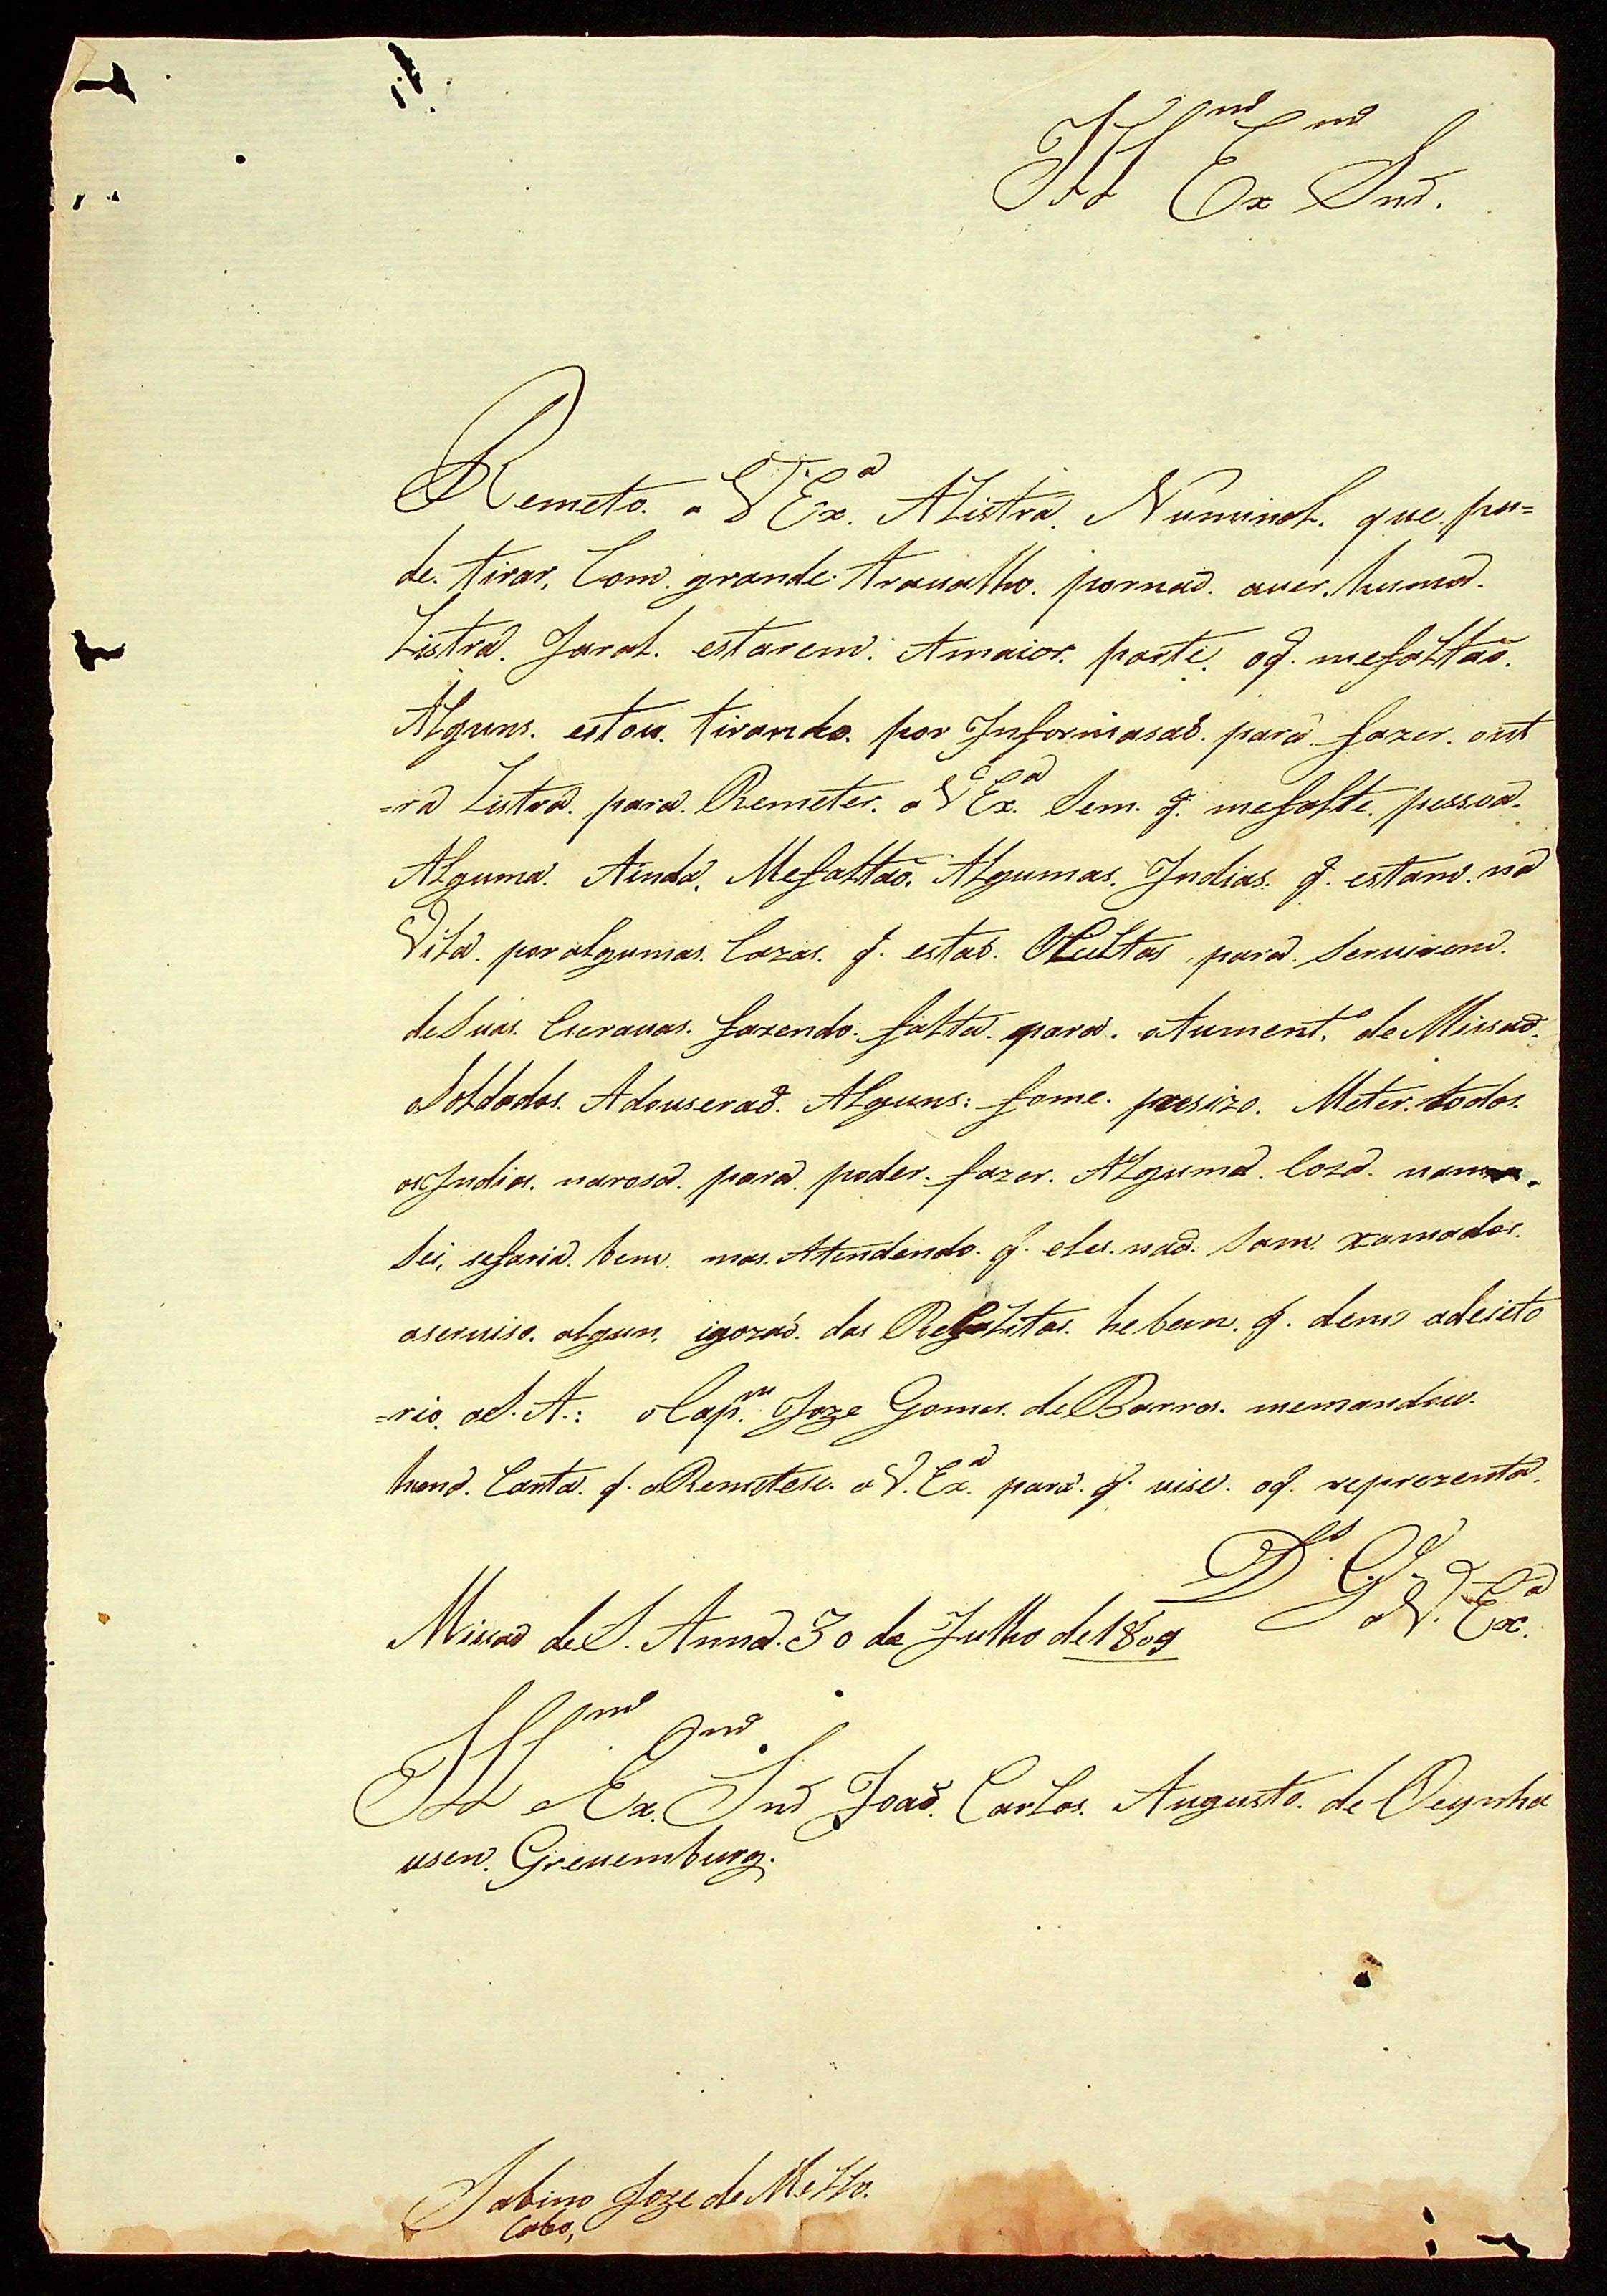 Ill.mo Ex.mo Snr.
Remeto. a V Ex.a A Listra. Numinal. que. pu=
de. tirar, Com. grande. traualho. pornaõ. auer. huma.
Listra. Jaral. estarem. A maior. parte. oq. mefaltaõ.
Alguns. estou. tirando. por Informasaõ. para fazer. out
=ra Listra. para. Remeter. a V Ex.a Sem. q. mefalte. pessoa.
Alguma. Ainda. Mefaltaõ. Algumas. Indias. q. estam. na
Vila. por algumas. Cazas. q. estaõ. Ocultas, para. Seruirem.
de Suas. Escrauas. fazendo. falta. para. o Aument.o de Missaõ.
o Soldados. Adouseraõ. Alguns: fome. presizo. Meter. todos.
os Indios. narosa. para. poder. fazer. Alguma. Coza. nam
Sei, sefaria. bem. mas. Atendendo. q. eles. naõ. Sam. xamados.
aseruiso. algun. igozaõ. das Regalitas. he bem. q. dem adeieto
=rio. aS. A.: o Cap.m Joze Gomes. de Barros. memandou.
huma. Carta. q. a Remetese. a V. Ex.a para. q. uise. oq. reprezenta.
D.s G.e a V. Ex.a
Missaõ de S. Anna. 30 de Julho de 1809
Ill.mo e Ex.mo Snr Joaõ. Carlos. Augusto. de Oeynha
usen. Greuemburg.
Sabino Joze de Mello.
Cabo,